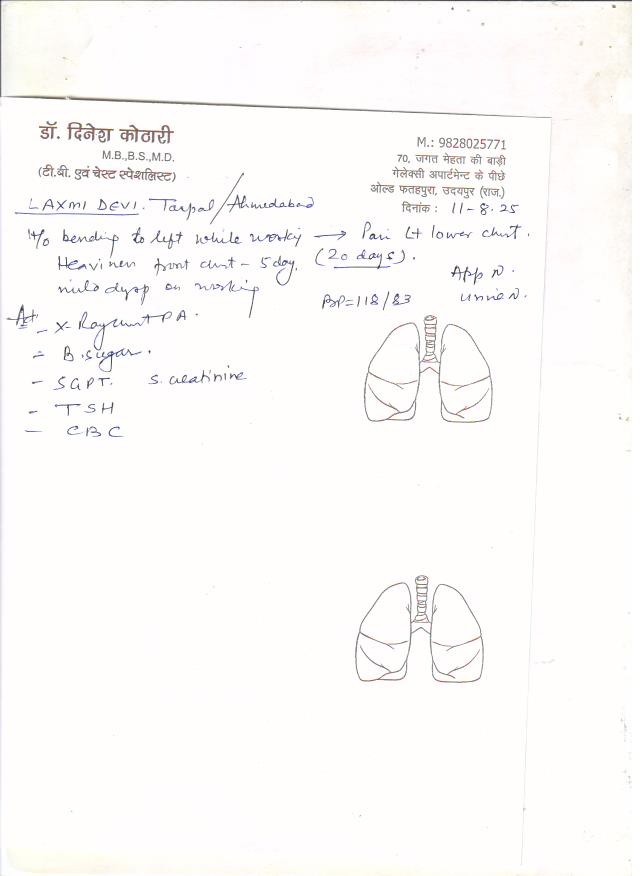 डॉ. दिनेश कोठारी
M.B.,B.S.,M.D.
(टी.बी. एवं चेस्ट स्पेशलिस्ट)
M.: 9828025771
70, जगत मेहता की बाड़ी
गेलेक्सी अपार्टमेन्ट के पीछे
ओल्ड फतहपुरा, उदयपुर (राज.)
दिनांक : 11-8-25
LAXMI DEVI. Tarpal/Ahmedabad
H/o bending to left while working → Pain Lt lower chest.
Heaviness front chest - 5 day. (20 days).
mild dysp on working
App N.
BP=118/83 urine N.
- X-Ray chest PA.
= B. sugar.
- SGPT. S. creatinine
- TSH
- CBC